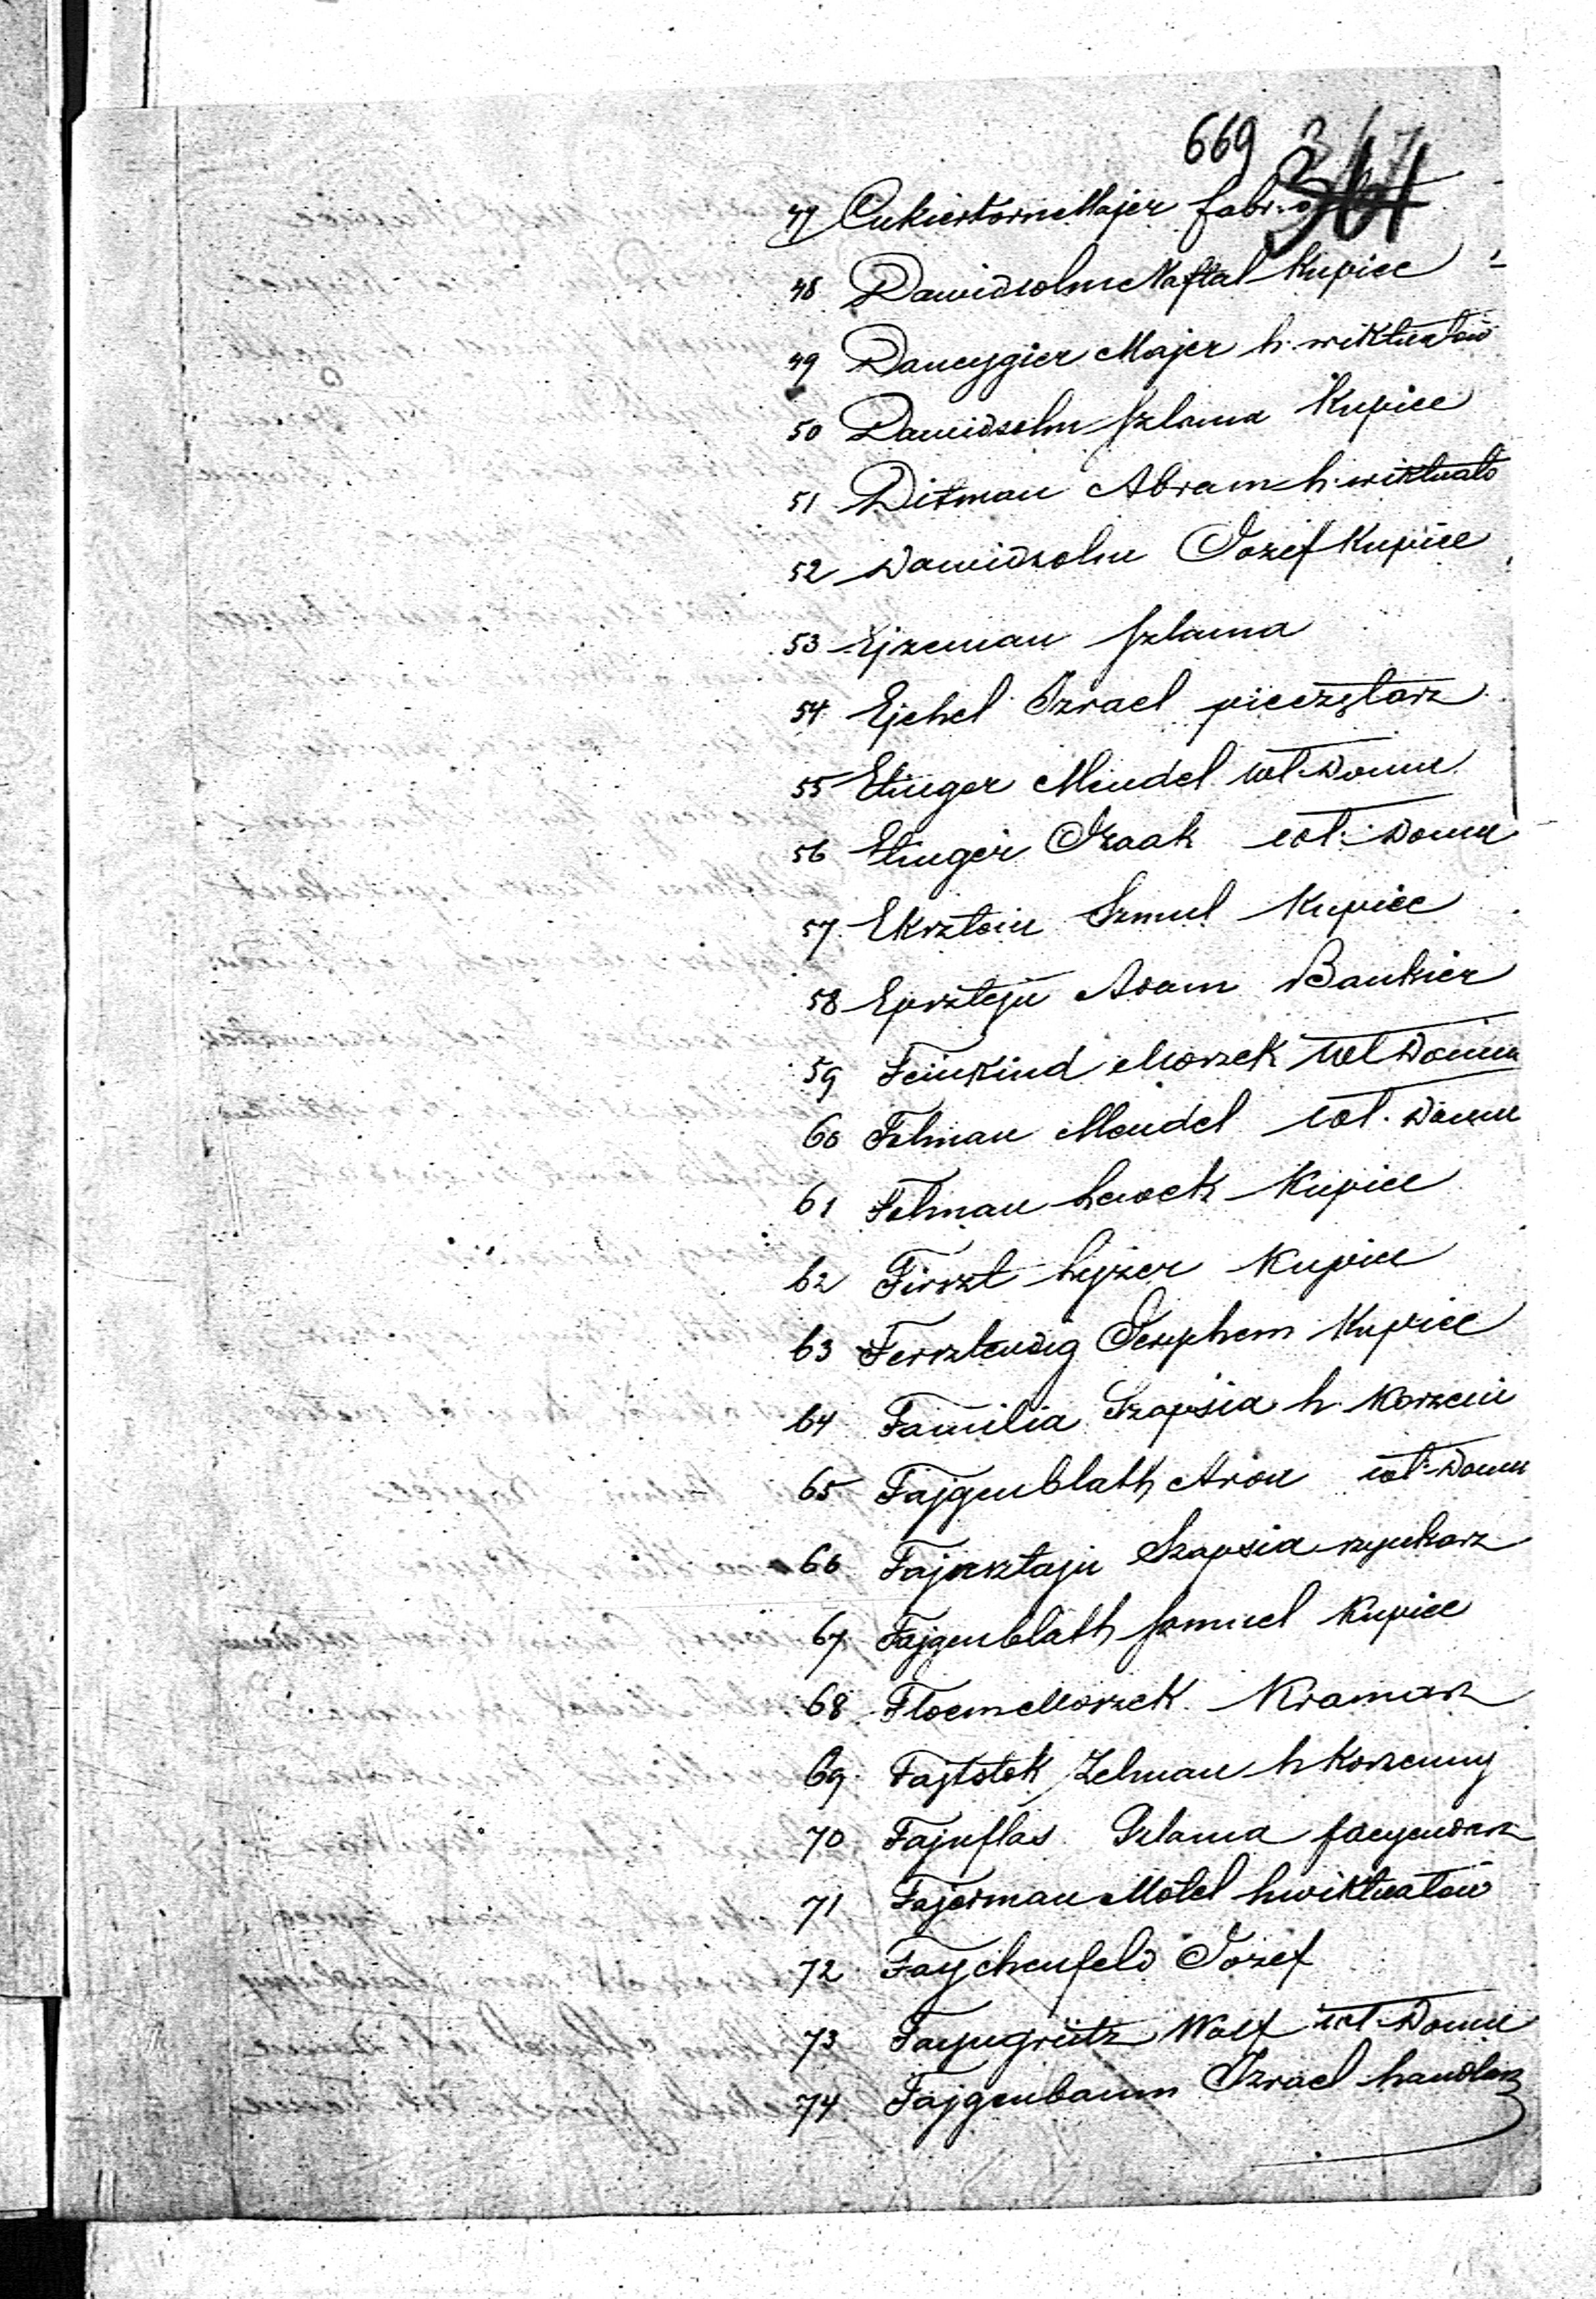 669 361
47 Cukiertorn Majer fabr.
48 Dawidsohn Naftal Kupiec
49 Dancygier Majer h. wiktuałów
50 Dawidsohn Szlama Kupiec
51 Ditman Abram h. wiktuałó
52 Dawidsohn Józef Kupiec
53 Ejzeman Szlama
54 Ejchel Izrael pieczętarz
55 Etinger Mendel wł. domu
56 Etinger Izaak wł. domu
57 Eksztein Szmul Kupiec
58 Epsztejn Adam Bankier
59 Feinkind Moszek wł domu
60 Felman Mendel wł. domu
61 Felman Lewek Kupiec
62 Firszt Lejzer Kupiec
63 Fersztendig Kupiec
64 Familia Szapsia h. Korzeni
65 Fajgenblath Aron wł. domu
66 Fajnsztajn Szapsia szynkarz
67 Fajgenblath Samuel Kupiec
68 Floem Moszek Kramarz
69 Zelman h Korzenny
70 Fajnflas Szlama facyendarz
71 Fajerman Motel h wiktuałów
72 Faychenfeld Józef
73 Fayngrütz Wolf wł. domu
74 Fajgenbaum Izrael handlarz